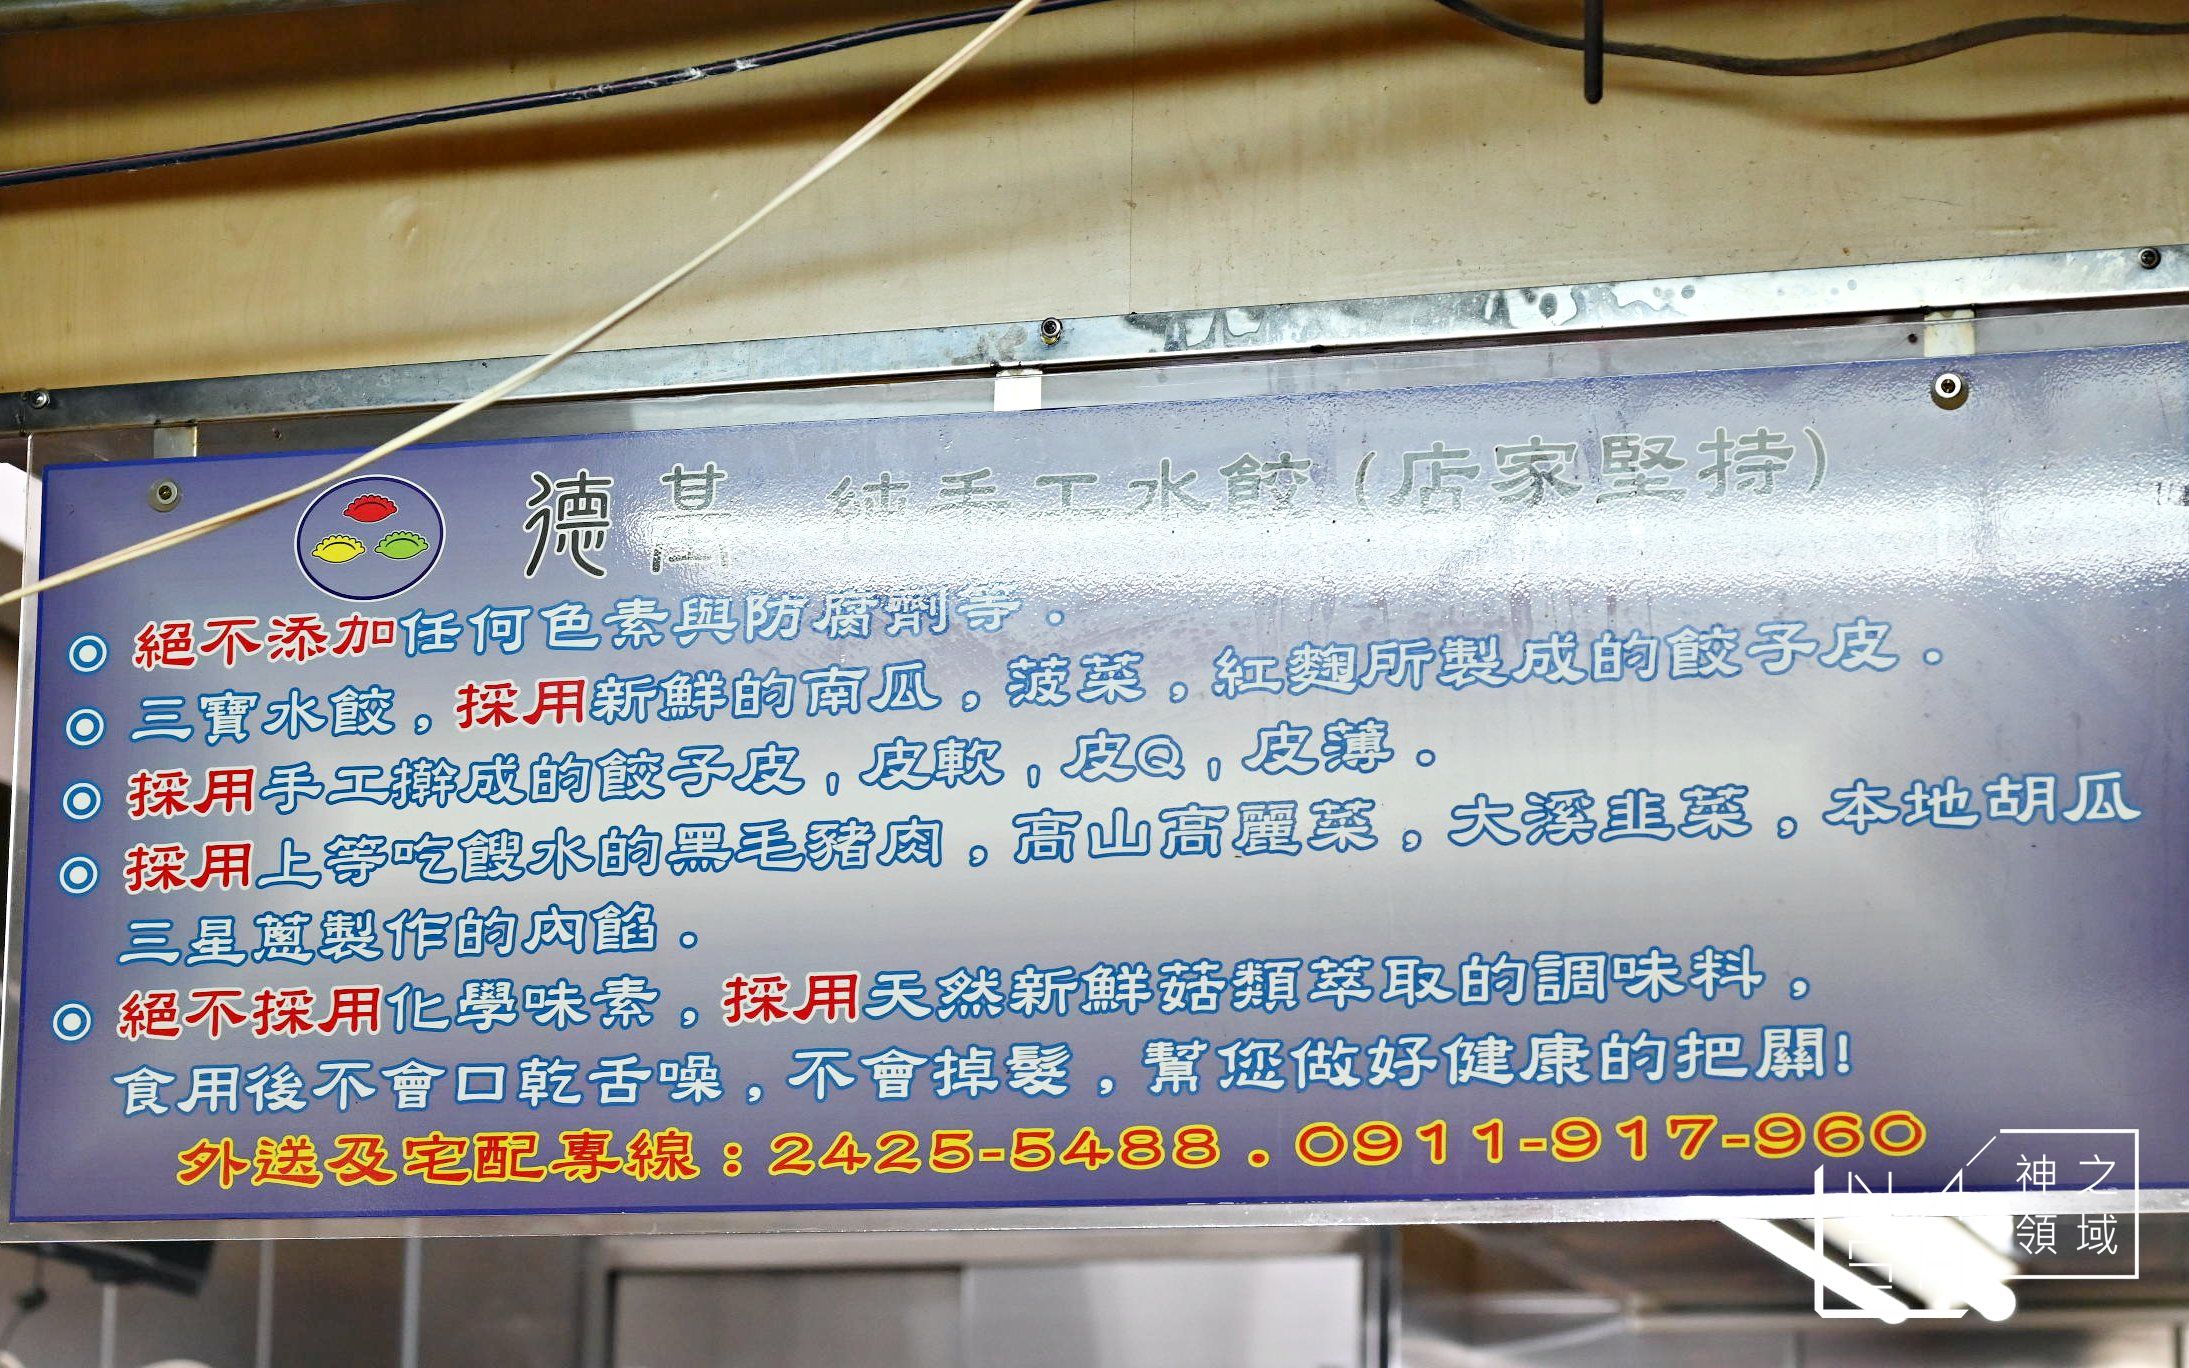 德 純手工水餃 (店家堅持)
◎ 絕不添加任何色素與防腐劑等．
◎ 三寶水餃，採用新鮮的南瓜，菠菜，紅麴所製成的餃子皮．
◎ 採用手工擀成的餃子皮，皮軟，皮Q，皮薄．
◎ 採用上等吃餿水的黑毛豬肉，高山高麗菜，大溪韭菜，本地胡瓜
三星蔥製作的內餡．
◎ 絕不採用化學味素，採用天然新鮮菇類萃取的調味料，
食用後不會口乾舌噪，不會掉髮，幫您做好健康的把關!
外送及宅配專線：2425-5488．0911-917-960
神之
領域